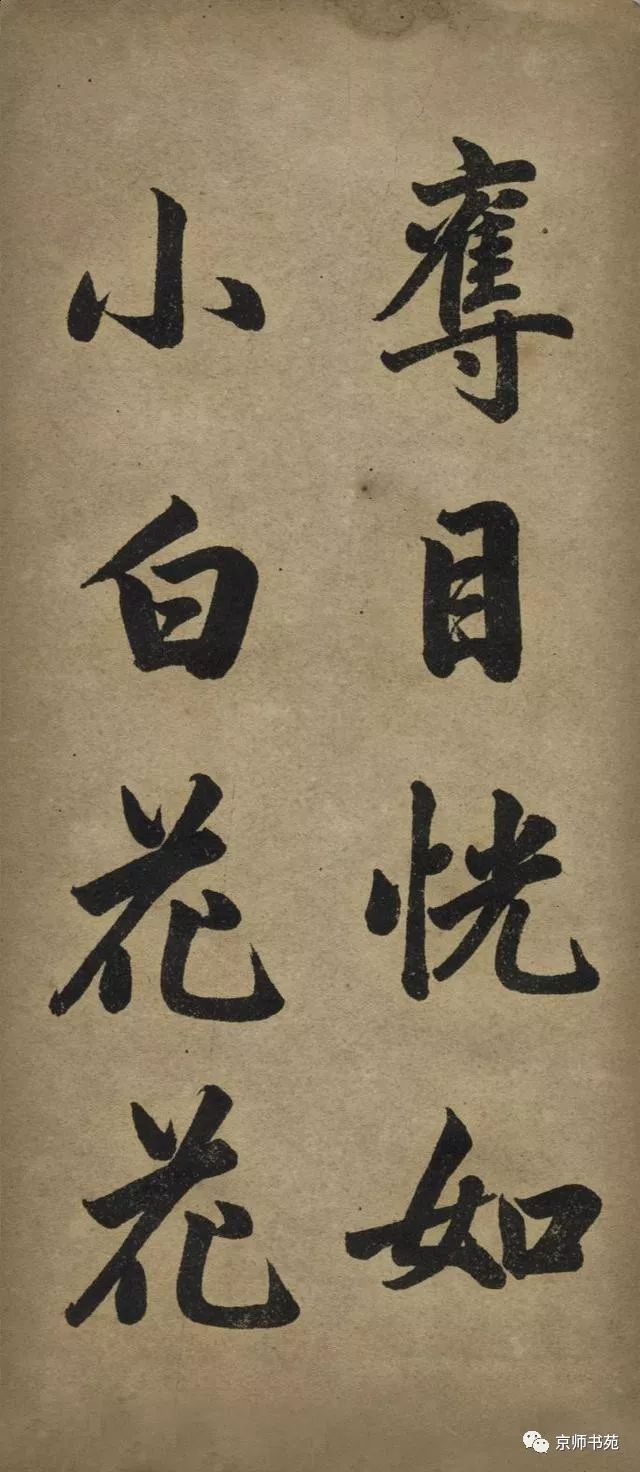 奪目恍如
小白花花
京师书苑